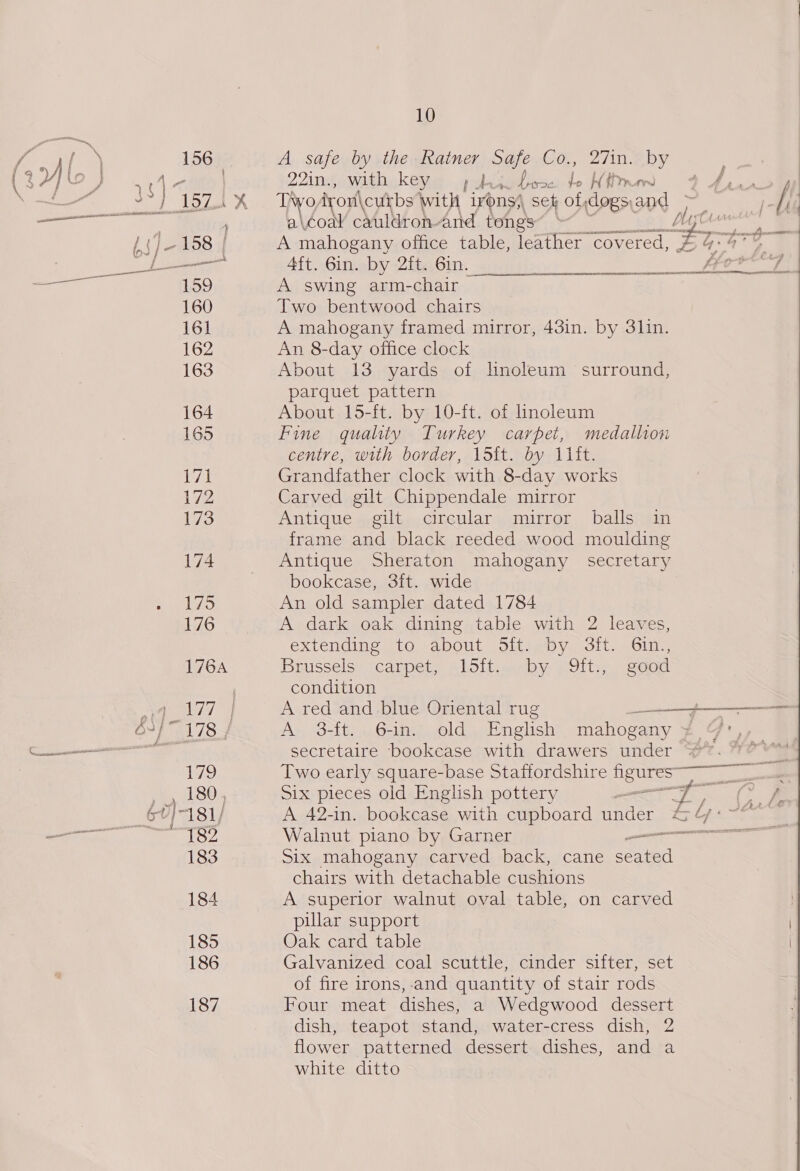 10
156 A safe by the Ratner Safe Co., 27in. by
22in., with key
157 Two iron curbs with irons, set of dogs and
a coal cauldron and tongs
158 A mahogany office table, leather covered, £4.4
4ft. 6in. by 2ft. 6in.
159 A swing arm-chair
160 Two bentwood chairs
161 A mahogany framed mirror, 43in. by 31in.
162 An 8-day office clock
163 About 13 yards of linoleum surround,
parquet pattern
164 About 15-ft. by 10-ft. of linoleum
165 Fine quality Turkey carpet, medallion
centre, with border, 15ft. by 11ft.
171 Grandfather clock with 8-day works
172 Carved gilt Chippendale mirror
173 Antique gilt circular mirror balls in
frame and black reeded wood moulding
174 Antique Sheraton mahogany secretary
bookcase, 3ft. wide
175 An old sampler dated 1784
176 A dark oak dining table with 2 leaves,
extending to about 5ft. by 3ft. 6in.,
176A Brussels carpet, 15ft. by 9ft., good
condition
177 A red and blue Oriental rug
178 A 3-ft. 6-in. old English mahogany
secretaire bookcase with drawers under
179 Two early square-base Staffordshire figures
180 Six pieces old English pottery
60/- 181 A 42-in. bookcase with cupboard under
182 Walnut piano by Garner
183 Six mahogany carved back, cane seated
chairs with detachable cushions
184 A superior walnut oval table, on carved
pillar support
185 Oak card table
186 Galvanized coal scuttle, cinder sifter, set
of fire irons, and quantity of stair rods
187 Four meat dishes, a Wedgwood dessert
dish, teapot stand, water-cress dish, 2
flower patterned dessert dishes, and a
white ditto